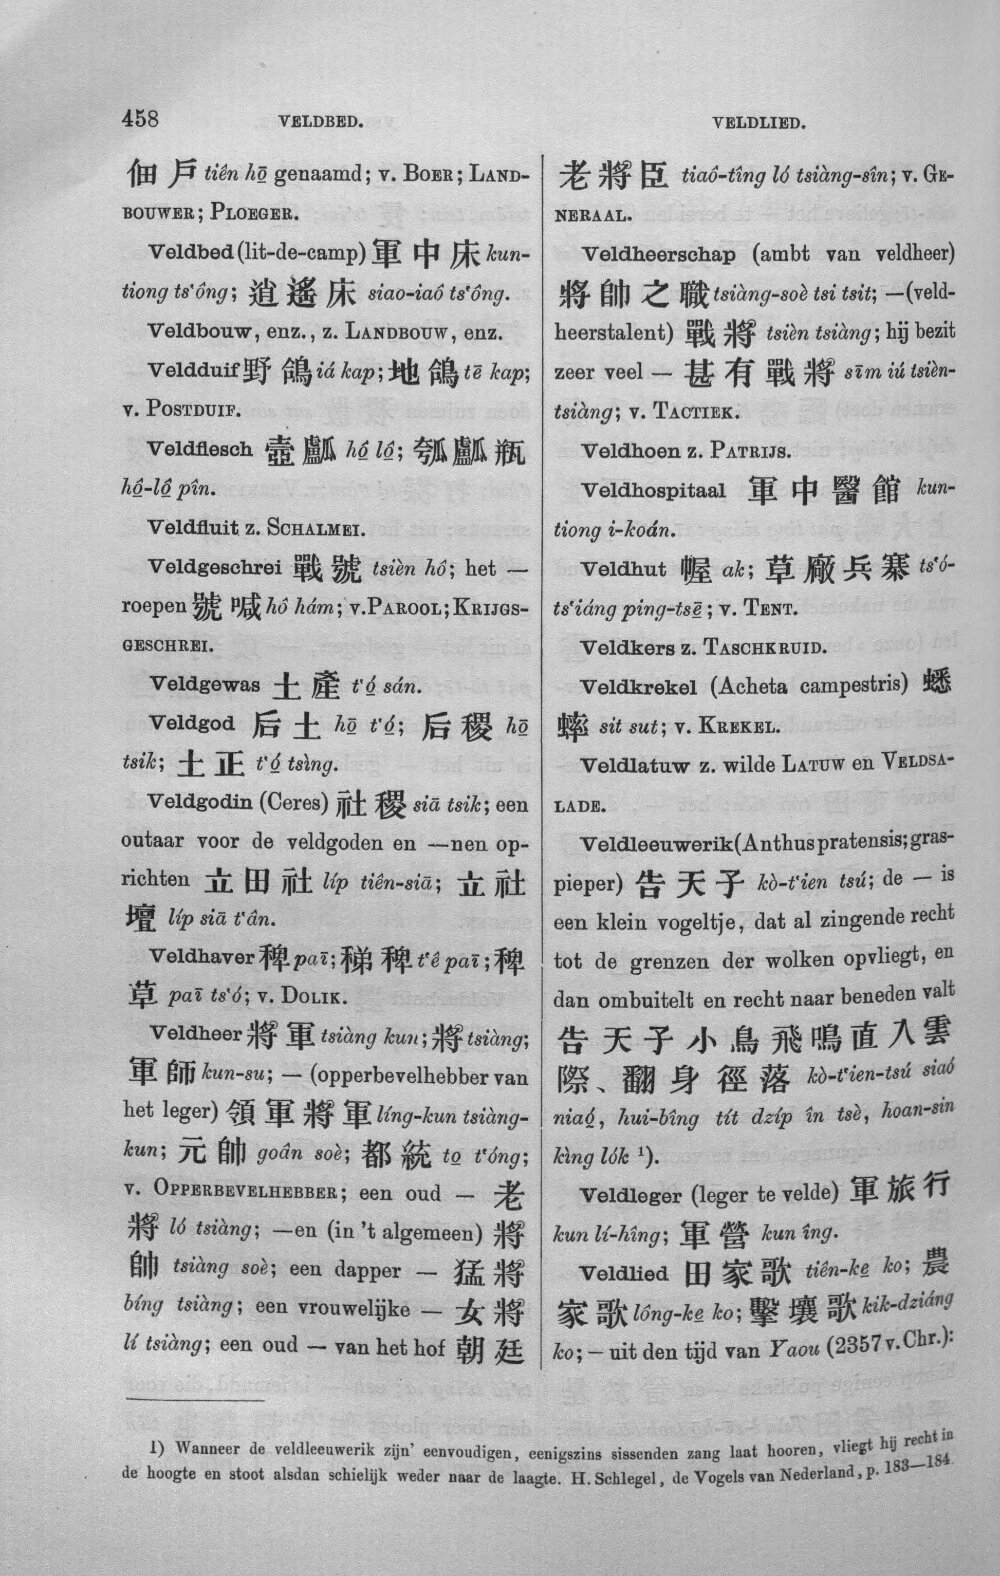 458 VELDBED. VELDLIED.
佃戶 tiên hō̱ genaamd; v. BOER; LAND-
BOUWER; PLOEGER.
Veldbed (lit-de-camp) 軍中床 kun-
tiong ts‘ông; 逍遙床 siao-iaô ts‘ông.
Veldbouw, enz., z. LANDBOUW, enz.
Veldduif 野鴿 iá kap; 地鴿 tē kap;
v. POSTDUIF.
Veldflesch 壺瓢 hô̱ lô̱; 瓠瓢瓶
hô̱-lô̱ pîn.
Veldfluit z. SCHALMEI.
Veldgeschrei 戰號 tsièn hô; het —
roepen 號喊 hô hám; v. PAROOL; KRIJGS-
GESCHREI.
Veldgewas 土產 t‘ó̱ sán.
Veldgod 后土 hō̱ t‘ó̱; 后稷 hō̱
tsik; 土正 t‘ó̱ tsìng.
Veldgodin (Ceres) 社稷 siā tsik; een
outaar voor de veldgoden en —nen op-
richten 立田社 líp tiên-siā; 立社
壇 líp siā t‘ân.
Veldhaver 稗 paī; 稊稗 t‘ê paī; 稗
草 paī ts‘ó; v. DOLIK.
Veldheer 將軍 tsiàng kun; 將 tsiàng;
軍師 kun-su; — (opperbevelhebber van
het leger) 領軍將軍 líng-kun tsiàng-
kun; 元帥 goân soè; 都統 to̱ t‘óng;
v. OPPERBEVELHEBBER; een oud — 老
將 ló tsiàng; —en (in 't algemeen) 將
帥 tsiàng soè; een dapper — 猛將
bíng tsiàng; een vrouwelijke — 女將
lí tsiàng; een oud — van het hof 朝廷
老將臣 tiaô-tîng ló tsiàng-sîn; v. GE-
NERAAL.
Veldheerschap (ambt van veldheer)
將帥之職 tsiàng-soè tsi tsit; —(veld-
heerstalent) 戰將 tsièn tsiàng; hij bezit
zeer veel — 甚有戰將 sīm iú tsièn-
tsiàng; v. TACTIEK.
Veldhoen z. PATRIJS.
Veldhospitaal 軍中醫館 kun-
tiong i-koán.
Veldhut 幄 ak; 草廠兵寨 ts‘ó-
ts‘iáng ping-tsē̱; v. TENT.
Veldkers z. TASCHKRUID.
Veldkrekel (Acheta campestris) 蟋
蟀 sit sut; v. KREKEL.
Veldlatuw z. wilde LATUW en VELDSA-
LADE.
Veldleeuwerik (Anthus pratensis; gras-
pieper) 告天子 kò-t‘ien tsú; de — is
een klein vogeltje, dat al zingende recht
tot de grenzen der wolken opvliegt, en
dan ombuitelt en recht naar beneden valt
告天子小鳥飛鳴直入雲
際、翻身徑落 kò-t‘ien-tsú siaó
niaó̱, hui-bîng tít dzíp în tsè, hoan-sin
kìng lók ¹).
Veldleger (leger te velde) 軍旅行
kun lí-hîng; 軍營 kun îng.
Veldlied 田家歌 tiên-ke̱ ko; 農
家歌 lông-ke̱ ko; 擊壤歌 kik-dziáng
ko; — uit den tijd van Yaou (2357 v. Chr.):
1) Wanneer de veldleeuwerik zijn' eenvoudigen, eenigszins sissenden zang laat hooren, vliegt hij recht in
de hoogte en stoot alsdan schielijk weder naar de laagte. H. Schlegel, de Vogels van Nederland, p. 183—184.